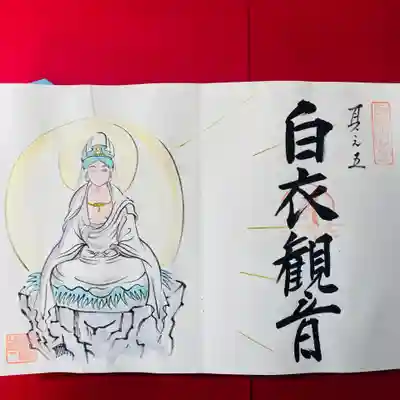 其之五
白衣観音